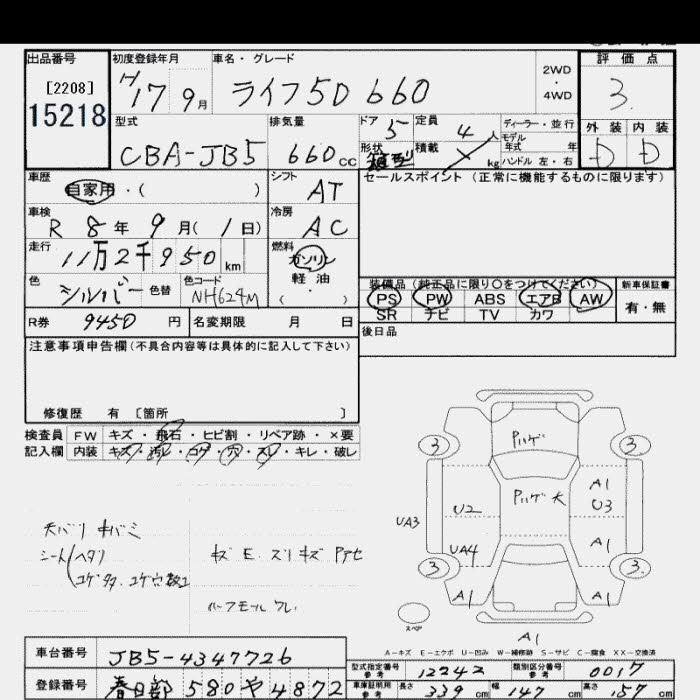 出品番号 初度登録年月 車名・グレード 2WD・4WD 評価点
[2208]
15218
H17年9月 ライフ5D 660 3
型式 排気量 ドア 5 定員 4人 ディーラー・並行 外装 内装
CBA-JB5 660cc 形状 箱型 積載 kg モデル年式 年 D D
ハンドル 左・右
車歴 自家用・( ) シフト AT セールスポイント (正常に機能するものに限ります)
車検 R 8年 9月( 1日) 冷房 AC
走行 11万2千950km 燃料 ガソリン
軽油
( ・ )
色 シルバー 色替 色コード NH624M
装備品 (純正品に限り○をつけてください) 新車保証書
PS PW ABS エアB AW 有・無
SR ナビ TV カワ
R券 9450円 名変期限 月 日 後日品
注意事項申告欄(不具合内容等は具体的に記入して下さい)
修復歴 有 [箇所 ]
検査員 FW キズ・飛石・ヒビ割・リペア跡・×要
記入欄 内装 キズ・汚レ・コゲ・穴・スレ・キレ・破レ
天バリ キバミ
シート ヘタリ キズ E. スリキズ アセ
コゲ多. コゲ穴数コ
ハーフモール ワレ
Pハゲ
3 3
Pハゲ 大 A1
U2 U3
UA3
UA4 A1
3 3
A1 A1
スペア
A1
A-キズ E-エクボ U-凹み W-補修跡 S-サビ C-腐食 XX-交換済
車台番号 JB5-4347726
型式指定番号 参考 12242 類別区分番号 参考 0017
登録番号 春日部 580 や 4872
車庫証明用 参考 長さ 339cm 幅 147cm 高さ 157cm